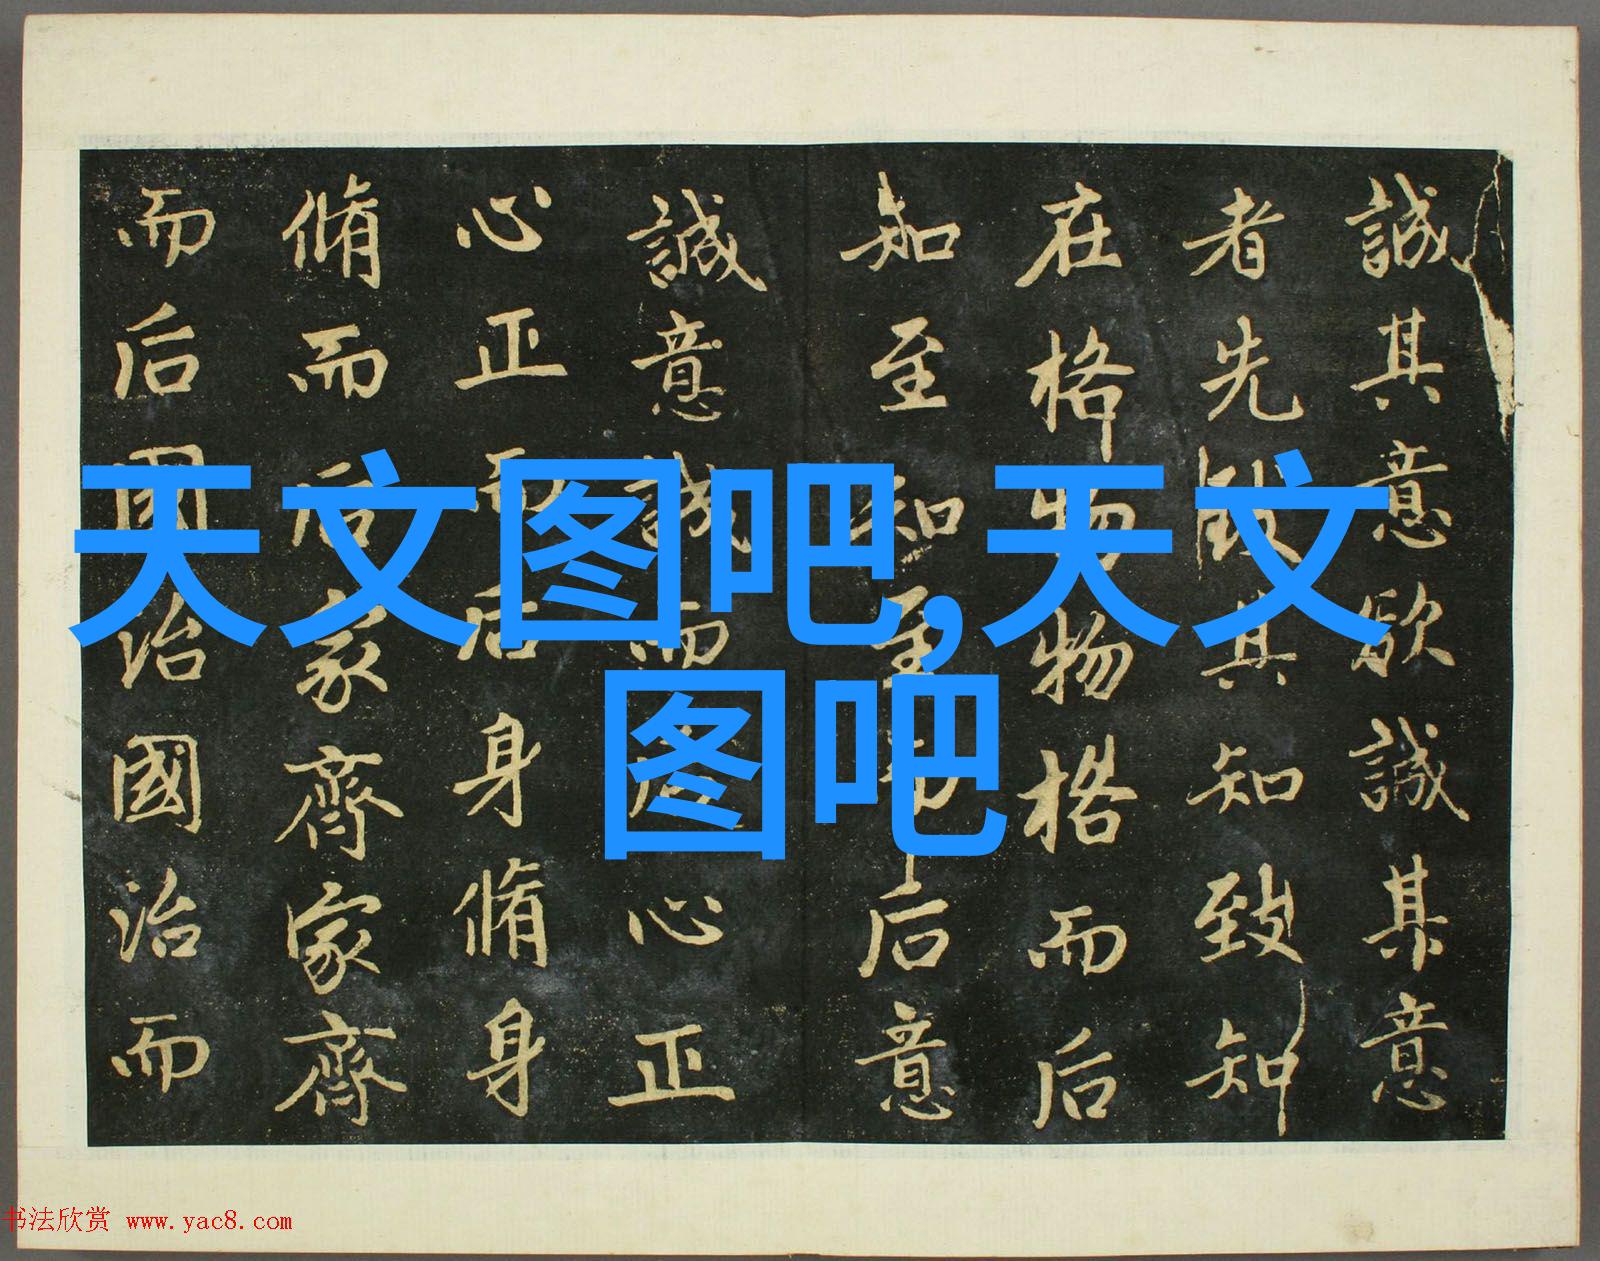 誠其意欲誠其意
者先致其知致知
在格物物格而后
知至知至而后意
誠意誠而后心正
心正而后身脩身
脩而后家齊家齊
而后國治國治而
天文图吧,天文
图吧
书法欣赏 www.yac8.com